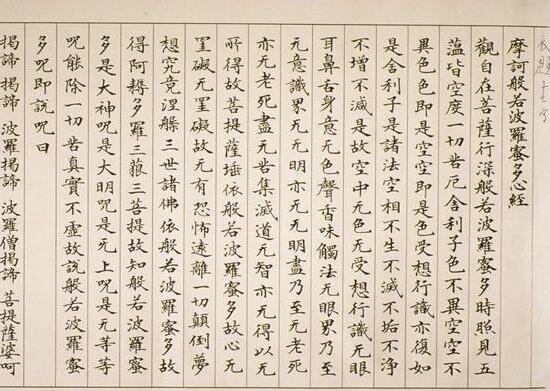 摩訶般若波羅蜜多心經
觀自在菩薩行深般若波羅蜜多時照見五
蘊皆空度一切苦厄舍利子色不異空空不
異色色即是空空即是色受想行識亦復如
是舍利子是諸法空相不生不滅不垢不淨
不增不減是故空中无色无受想行識无眼
耳鼻舌身意无色聲香味觸法无眼界乃至
无意識界无无明亦无无明盡乃至无老死
亦无老死盡无苦集滅道无智亦无得以无
所得故菩提薩埵依般若波羅蜜多故心无
罣礙无罣礙故无有恐怖遠離一切顛倒夢
想究竟涅槃三世諸佛依般若波羅蜜多故
得阿耨多羅三藐三菩提故知般若波羅蜜
多是大神呪是大明呪是无上呪是无等等
呪能除一切苦真實不虛故說般若波羅蜜
多呪即說呪曰
揭諦 揭諦 波羅揭諦 波羅僧揭諦 菩提薩婆呵